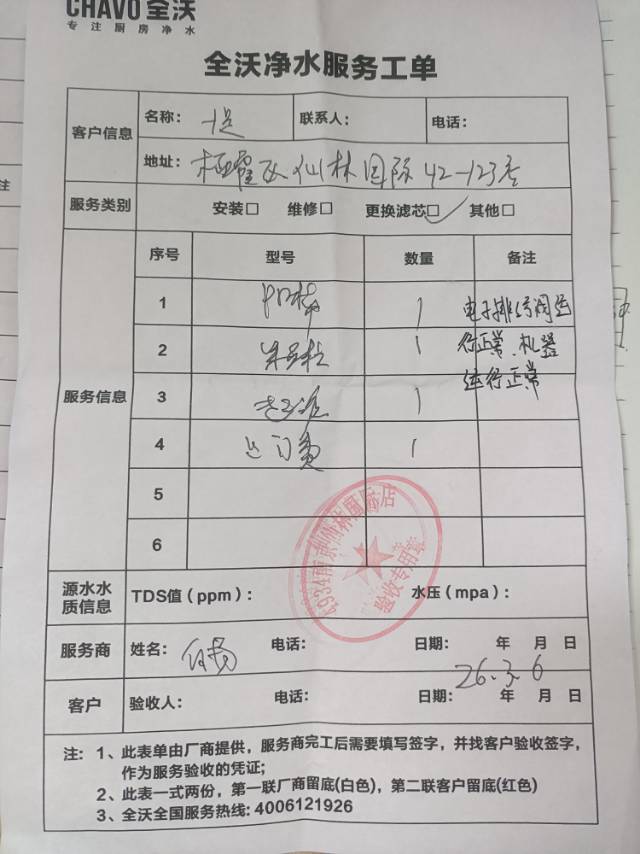 CHAVO 全沃
专注厨房净水
全沃净水服务工单
客户信息
名称：
联系人：
电话：
地址： 仙林国际 42-123号
服务类别
安装□ 维修□ 更换滤芯□ 其他□
服务信息
序号 型号 数量 备注
1 1 电子排污阀运
2 1 行正常、机器
3 1 运行正常
4 上门费 1
5
6
源水水质信息
TDS值（ppm）： 水压（mpa）：
服务商
姓名： 电话： 日期： 年 月 日
26.3.6
客户
验收人： 电话： 日期： 年 月 日
注：1、此表单由厂商提供，服务商完工后需要填写签字，并找客户验收签字，
作为服务验收的凭证；
2、此表一式两份，第一联厂商留底(白色)，第二联客户留底(红色)
3、全沃全国服务热线: 4006121926
验收专用章